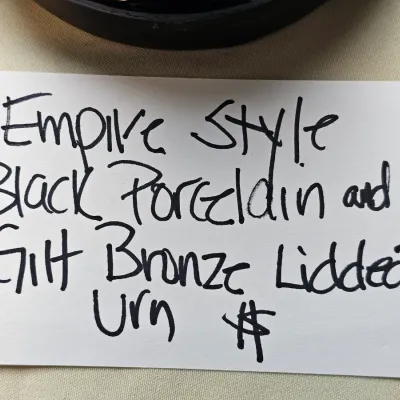 Empire Style
Black Porceldin and
Gilt Bronze Lidded
Urn $